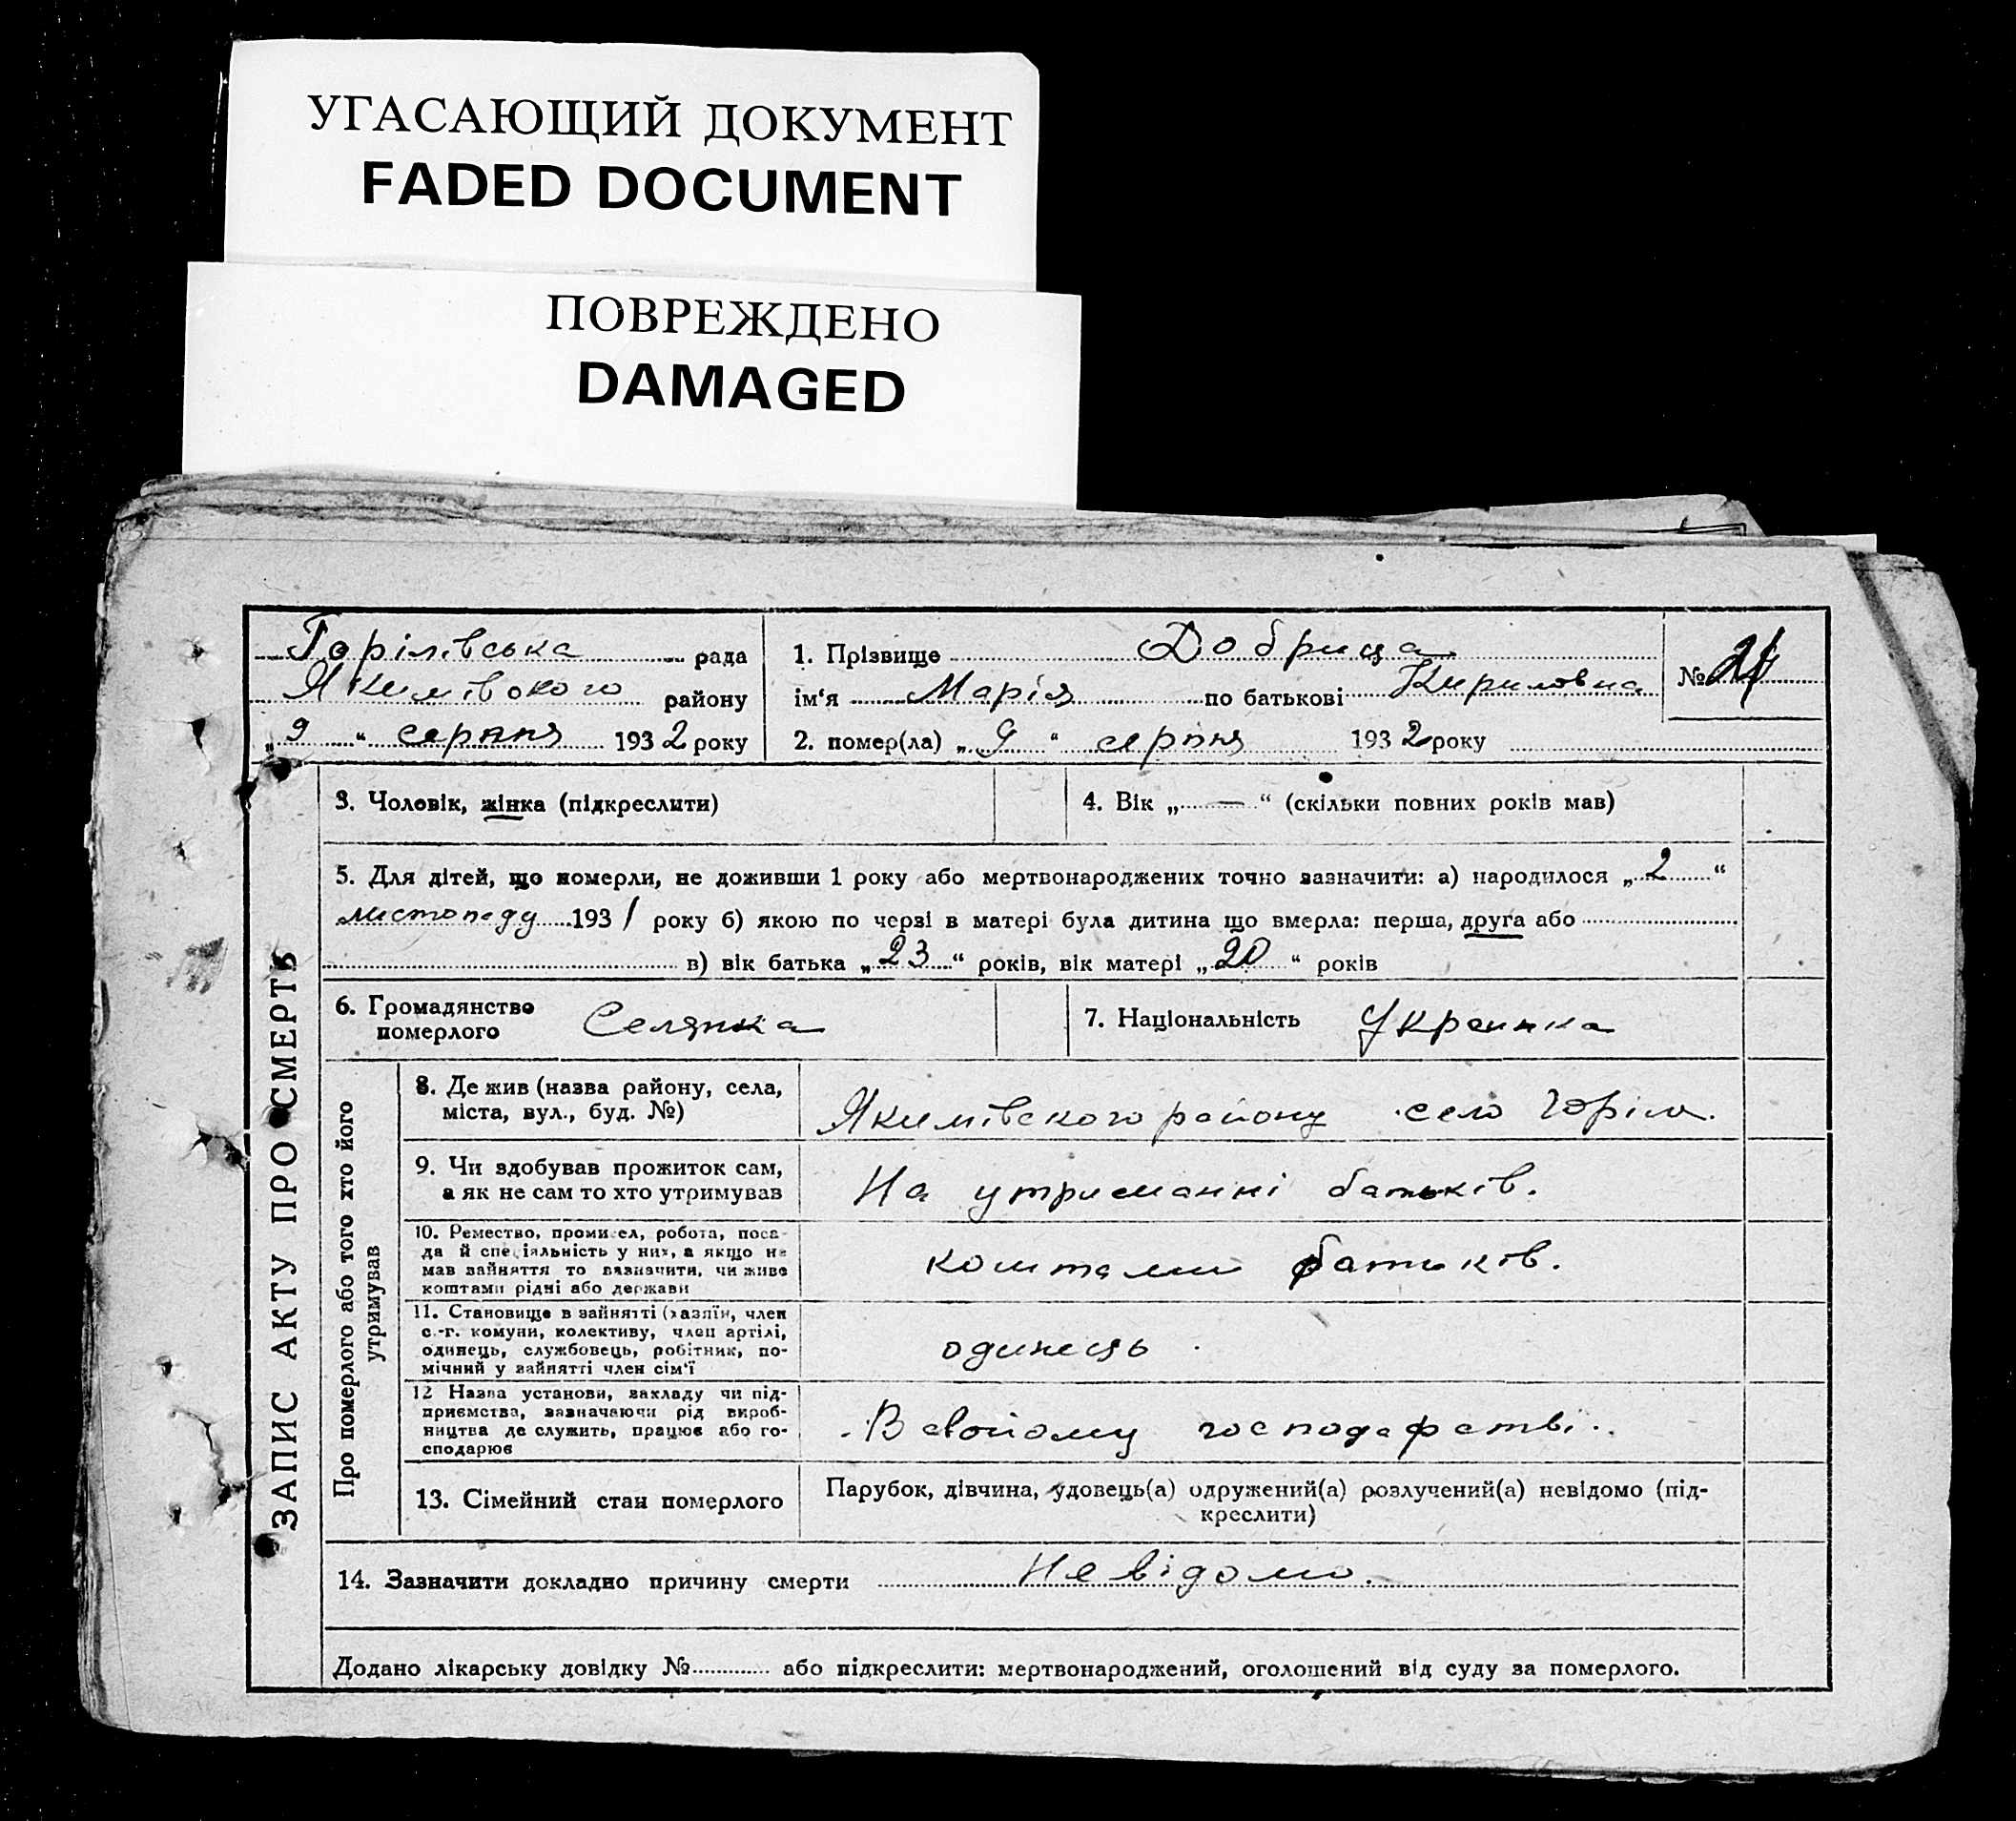 УГАСАЮЩИЙ ДОКУМЕНТ
FADED DOCUMENT
ПОВРЕЖДЕНО
DAMAGED
ЗАПИС АКТУ ПРО СМЕРТЬ
Горілівська рада
Якимівского району
„9“ серпня 1932 року
1. Прізвище Добрица
ім‘я Марія по батькові Кириловна
2. помер(ла) „9“ серпня 1932 року
№ 24
3. Чоловік, жінка (підкреслити)
4. Вік „—“ (скільки повних років мав)
5. Для дітей, що померли, не доживши 1 року або мертвонароджених точно зазначити: а) народилося „2“
листопаду 1931 року б) якою по черзі в матері була дитина що вмерла: перша, друга або
в) вік батька „23“ років, вік матері „20“ років
6. Громадянство
померлого Селянка
7. Національність Украинка
Про померлого або того хто його
утримував
8. Де жив (назва району, села,
міста, вул., буд. №)
Якимівского району село Горіл.
9. Чи здобував прожиток сам,
а як не сам то хто утримував
На утриманні батьків.
10. Ремество, промисел, робота, поса-
да й спеціяльність у них, а якщо не
мав зайняття то зазначити, чи живе
коштами рідні або держави
коштами батьків.
11. Становище в зайнятті (хазяїн, член
с.-г. комуни, колективу, член артілі,
одинець, службовець, робітник, по-
мічний у зайнятті член сім‘ї
одинець
12 Назва установи, закладу чи під-
приємства, зазначаючи рід вироб-
ництва де служить, працює або го-
сподарює
В своиому господарстві.
13. Сімейний стан померлого
Парубок, дівчина, удовець(а) одружений(а) розлучений(а) невідомо (під-
креслити)
14. Зазначити докладно причину смерти Невідомо.
Додано лікарську довідку № або підкреслити: мертвонароджений, оголошений від суду за померлого.